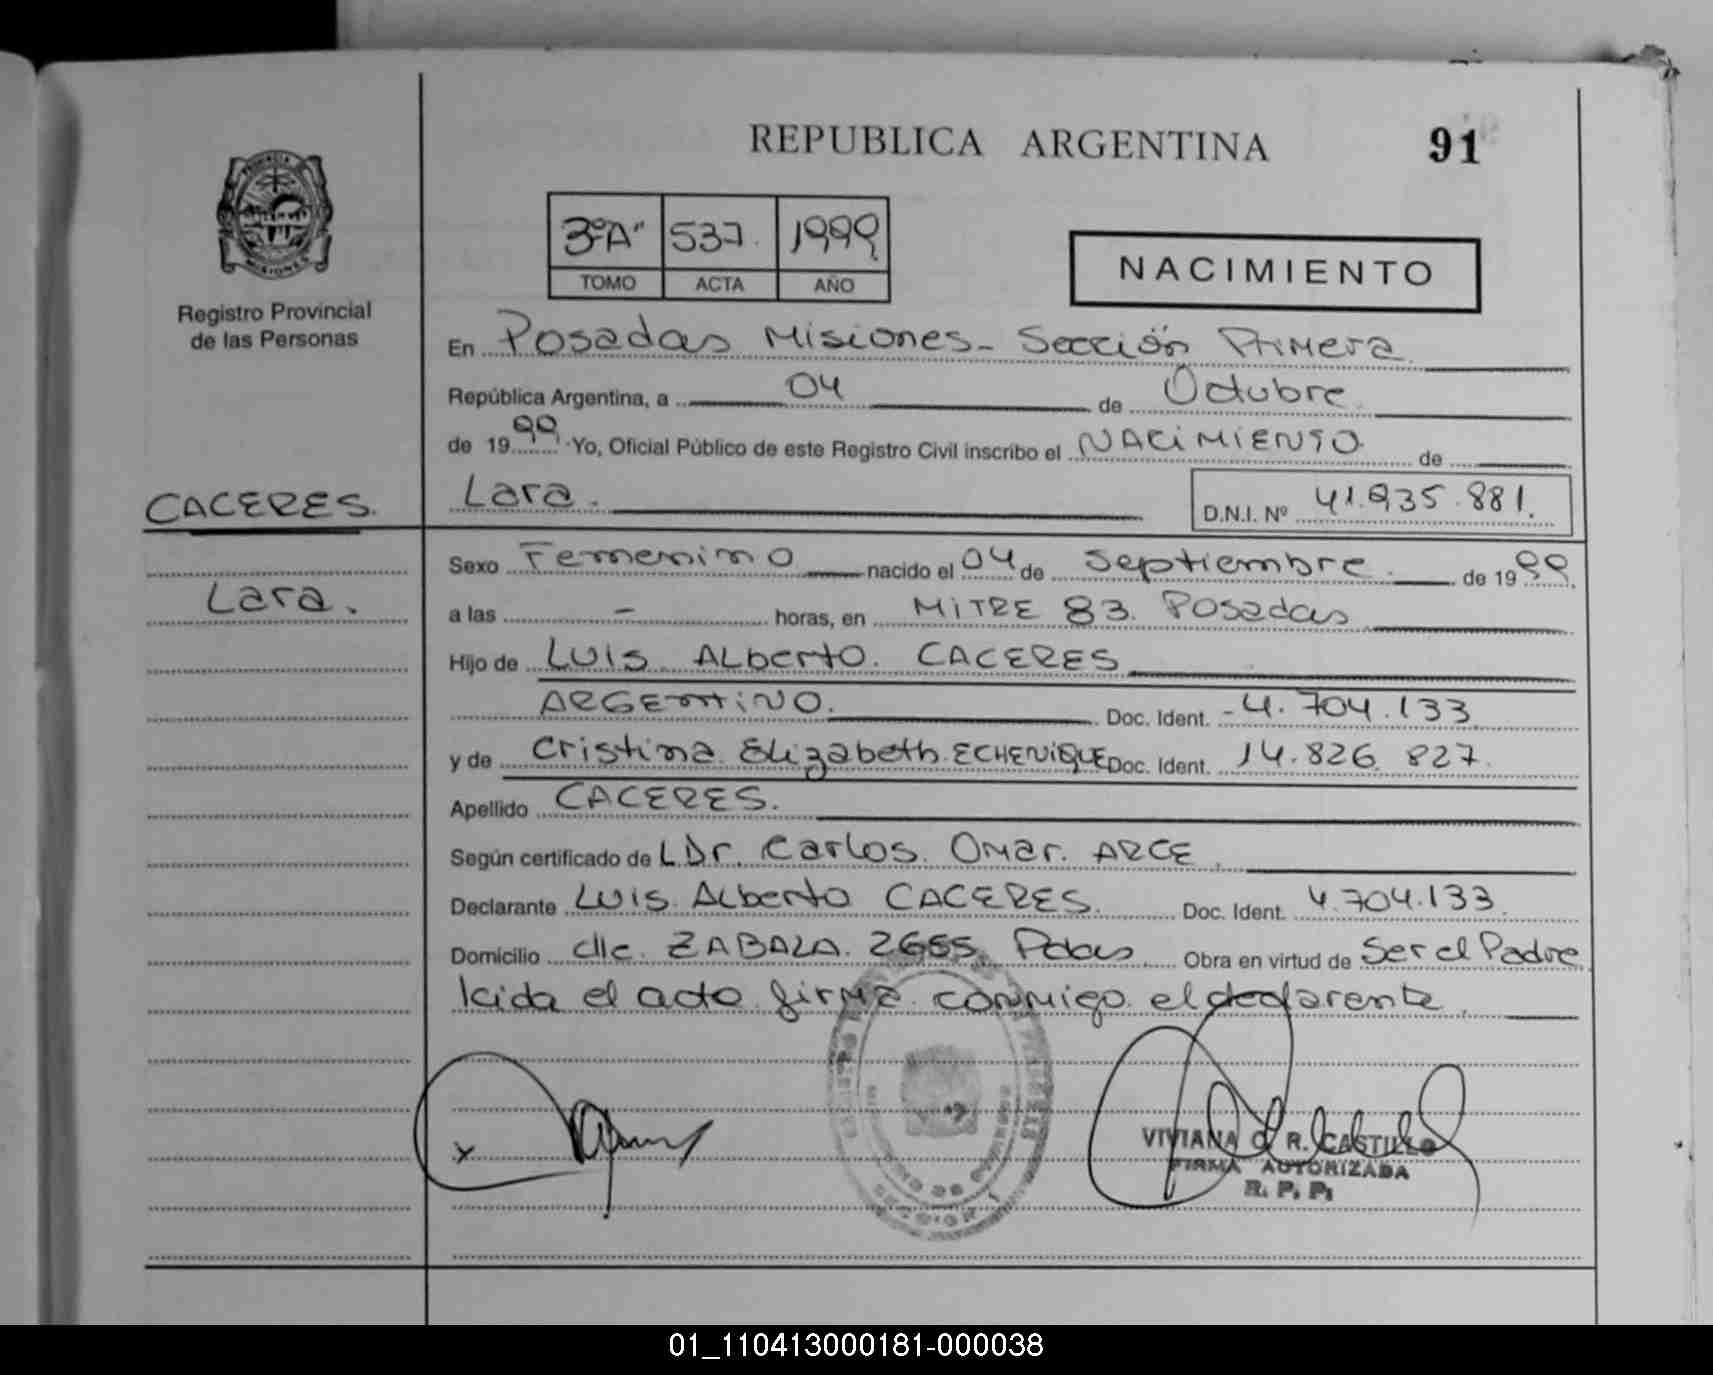 REPUBLICA ARGENTINA
91
PROVINCIA
MISIONES
Registro Provincial
de las Personas
3º"A" 537. 1999
TOMO ACTA AÑO
NACIMIENTO
En Posadas Misiones - Sección Primera
República Argentina, a 04 de Octubre.
de 1999 Yo, Oficial Público de este Registro Civil inscribo el NACIMIENTO de
CACERES.
Lara.
Lara. D.N.I. Nº 41.935.881.
Sexo Femenino nacido el 04 de Septiembre. de 1999
a las - horas, en MITRE 83. Posadas
Hijo de LUIS ALBERTO. CACERES
ARGENTINO. Doc. Ident. 4.704.133
y de Cristina Elizabeth ECHENIQUE Doc. Ident. 14.826.827.
Apellido CACERES.
Según certificado de L Dr. Carlos Omar. ARCE.
Declarante LUIS ALBERTO CACERES. Doc. Ident. 4.704.133.
Domicilio clle. ZABALA. 2655. Pdas Obra en virtud de Ser el Padre
leida el acta firma conmigo el declarante.
x
VIVIANA C. R. CASTILLO
FIRMA AUTORIZADA
R. P. P.
01_110413000181-000038